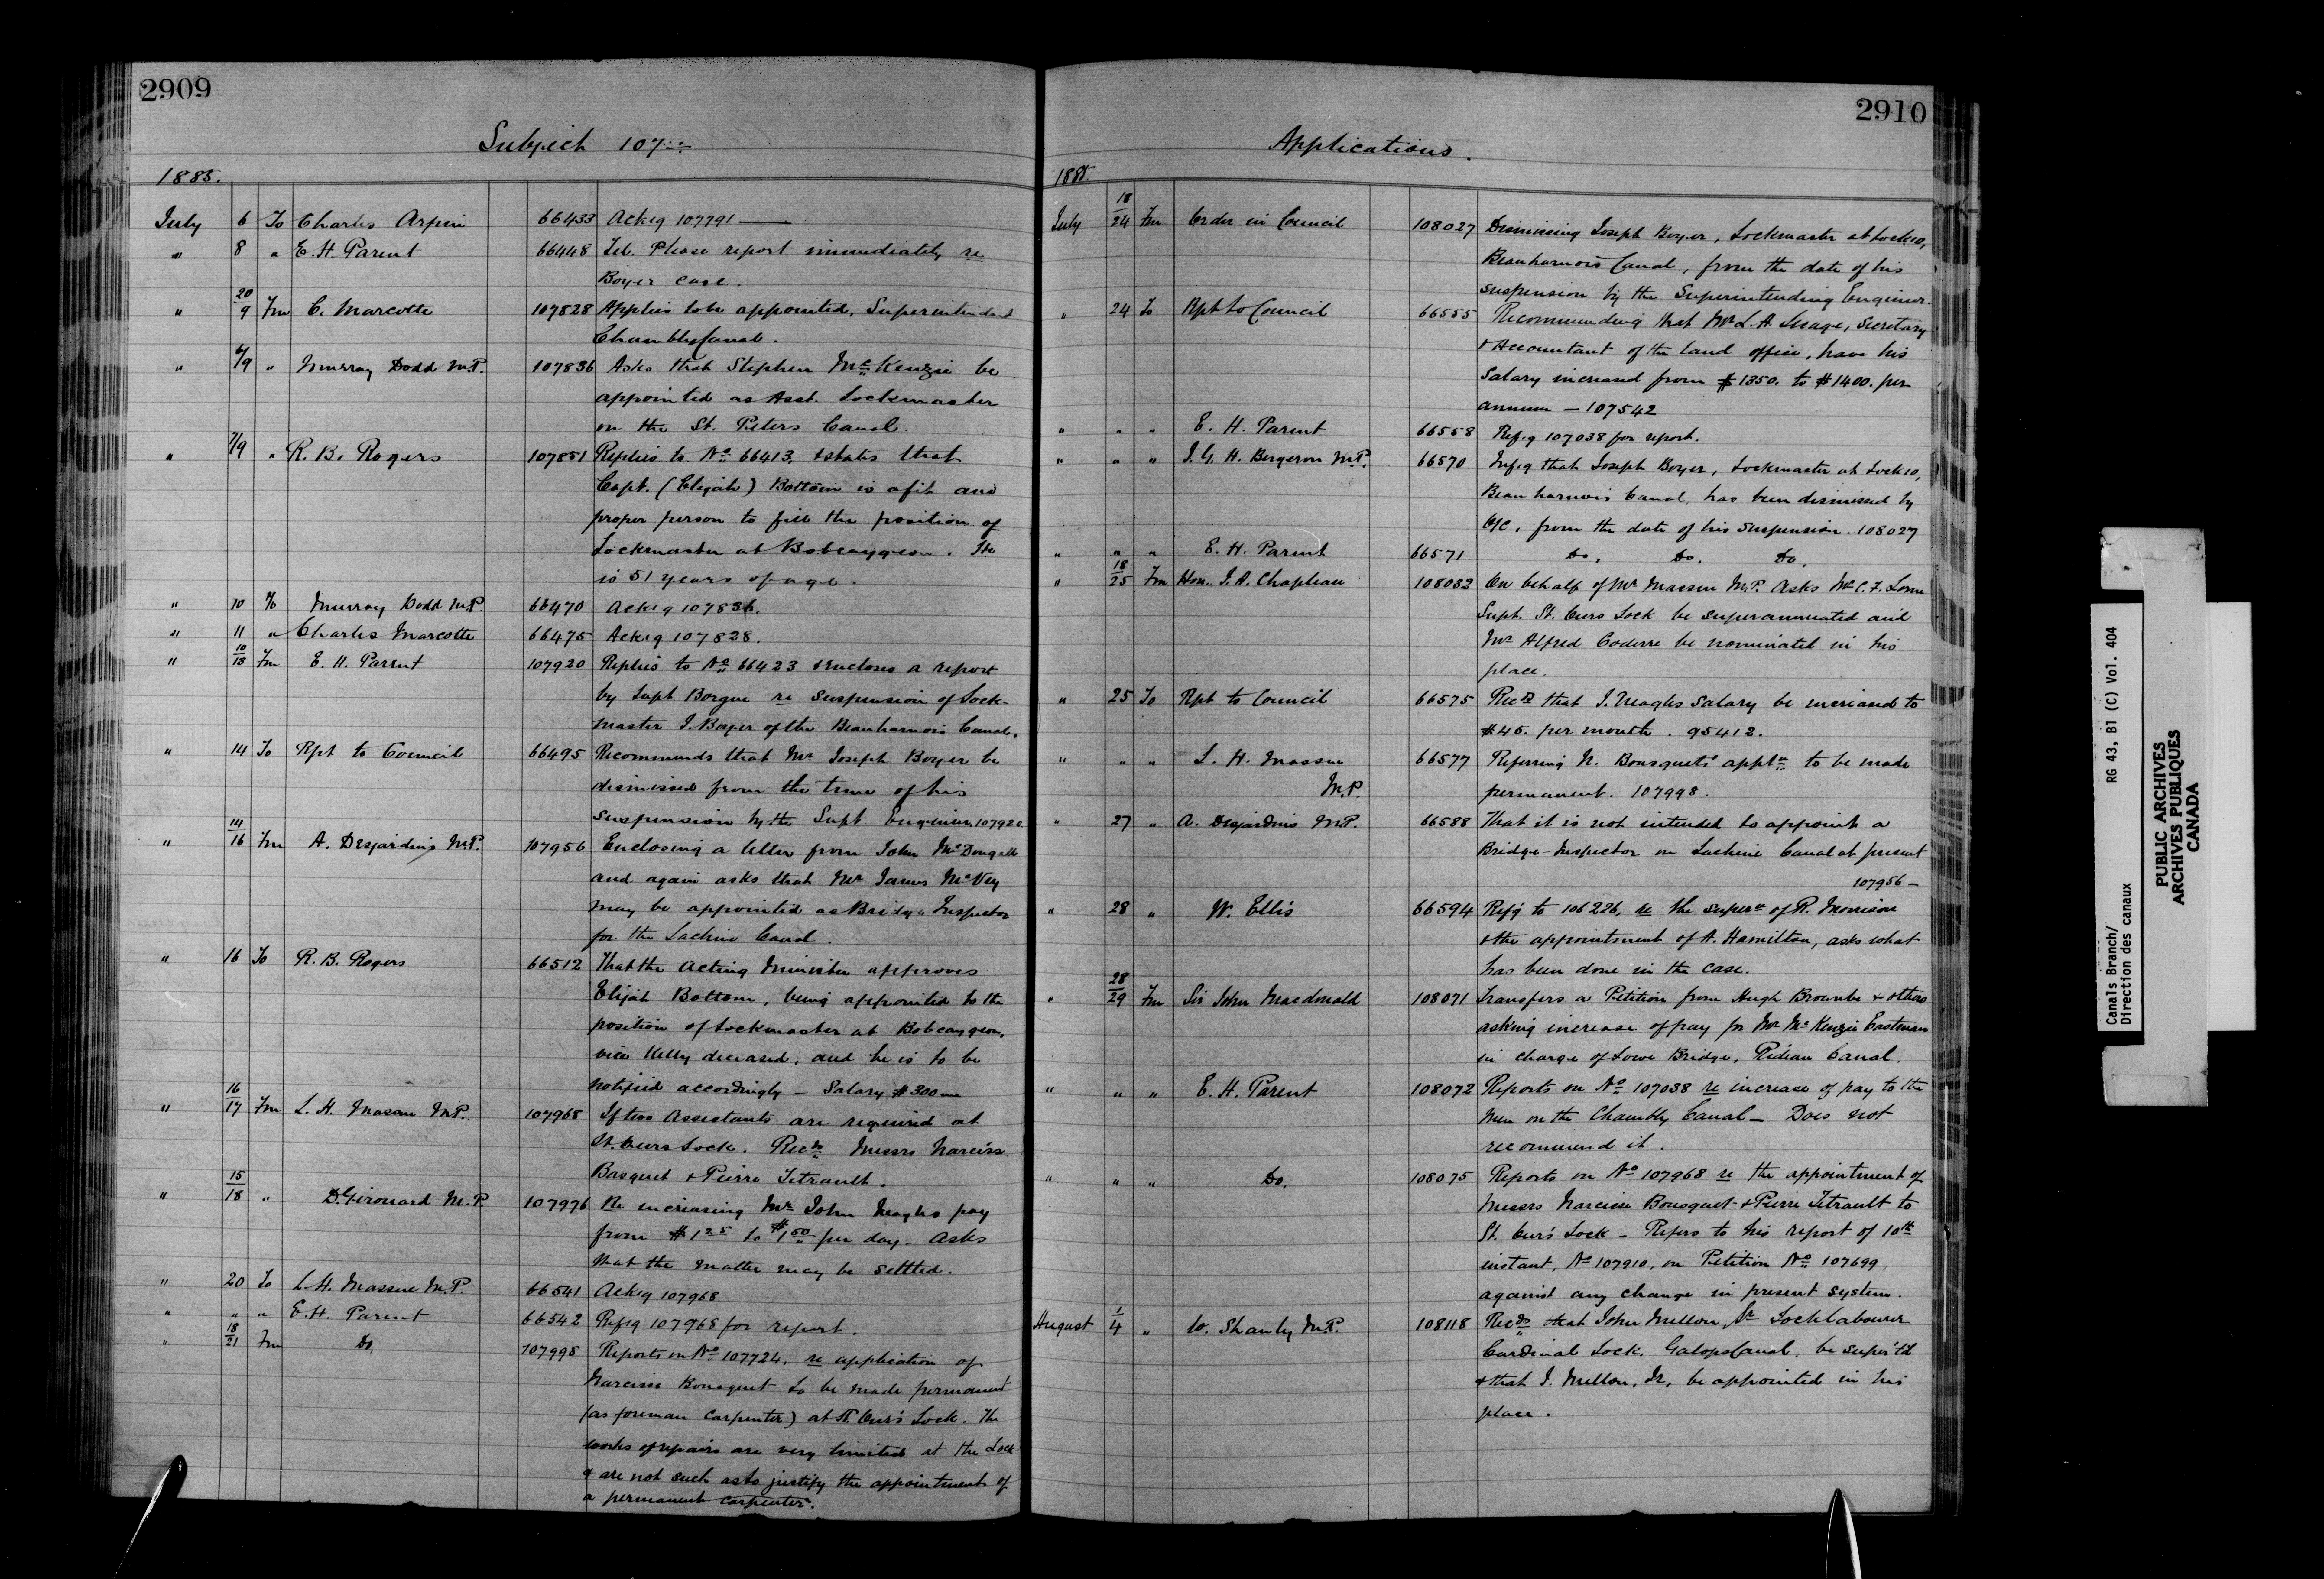 2909
Subject 107
1885.
July 6 To Charles Arpin 66433 Ackg 107791
" 8 " E. H. Parent 66448 Tel. Please report immediately re
Boyer case.
" 20/9 Fm C. Marcotte 107828 Applies to be appointed, Superintendent
Chambly Canal.
" 6/9 " Murray Dodd M.P. 107836 Asks that Stephen McKenzie be
appointed as Asst. Lockmaster
on the St. Peters Canal.
" 7/9 " R. B. Rogers 107851 Replies to No 66413, & states that
Capt. (Elijah) Bottom is a fit and
proper person to fill the position of
Lockmaster at Bobcaygeon. He
is 51 years of age.
" 10 To Murray Dodd M.P. 66470 Ackg 107836.
" 11 " Charles Marcotte 66475 Ackg 107828.
" 10/13 Fm E. H. Parent 107920 Replies to No 66423 & encloses a report
by Supt Borgue re suspension of Lock-
master J. Boyer of the Beauharnois Canal.
" 14 To Rpt to Council 66495 Recommends that Mr Joseph Boyer be
dismissed from the time of his
suspension by the Supt Engineer 107920
" 14/16 Fm A. Desjardins M.P. 107956 Enclosing a letter from John McDougall
and again asks that Mr James McVey
may be appointed as Bridge Inspector
for the Lachine Canal.
" 16 To R. B. Rogers 66512 That the Acting Minister approves
Elijah Bottom, being appointed to the
position of Lockmaster at Bobcaygeon,
vice Kelly deceased, and he is to be
notified accordingly – Salary $300
" 16/17 Fm L. H. Massue M.P. 107968 If two Assistants are required at
St. Ours Lock. Recds Messrs Narcisse
Basquet & Pierre Tetrault.
" 15/18 " D. Girouard M.P. 107976 Re increasing Mr John Meaghs pay
from $1 25 to $1 50 per day – Asks
that the matter may be settled.
" 20 To L. H. Massue M.P. 66541 Ackg 107968
" " " E. H. Parent 66542 Refrg 107968 for report.
" 18/21 Fm Do. 107998 Reports on No 107724, re application of
Narcisse Bousquet to be made permanent
(as foreman carpenter) at St. Ours Lock. The
works of repairs are very limited at the Lock
& are not such as to justify the appointment of
a permanent carpenter.
2910
Applications.
1885.
July 18/24 Fm Order in Council 108027 Dismissing Joseph Boyer, Lockmaster at Lock 10,
Beauharnois Canal, from the date of his
suspension by the Superintending Engineer.
" 24 To Rpt to Council 66555 Recommending that Mr L. A. Lesage, Secretary
& Accountant of the land office, have his
salary increased from $1350. to $1400. per
annum – 107542
" " " E. H. Parent 66558 Refrg 107038 for report.
" " " J. G. H. Bergeron M.P. 66570 Infrg that Joseph Boyer, Lockmaster at Lock 10,
Beauharnois Canal, has been dismissed by
O/C, from the date of his suspension. 108027
" " " E. H. Parent 66571 Do. Do. Do.
" 18/25 Fm Hon. J. A. Chapleau 108032 On behalf of Mr Massue M.P. Asks Mr C. F.
Supt. St. Ours Lock be superannuated and
Mr Alfred Coderre be nominated in his
place.
" 25 To Rpt to Council 66575 Recds that J. Meaghs Salary be increased to
$45. per month. 95412.
" " " L. H. Massue 66577 Referring N. Bousquets appln to be made
M.P. permanent. 107998.
" 27 " A. Desjardins M.P. 66588 That it is not intended to appoint a
Bridge-Inspector on Lachine Canal at present
107956 –
" 28 " W. Ellis 66594 Refg to 106226, re the supern of R. Morrison
& the appointment of A. Hamilton, asks what
has been done in the case.
" 28/29 Fm Sir John Macdonald 108071 Transfers a Petition from Hugh Brownbe & others
asking increase of pay for Mr McKenzie Eastman
in charge of Lowe Bridge, Rideau Canal.
" " " E. H. Parent 108072 Reports on No 107038 re increase of pay to the
men on the Chambly Canal – Does not
recommend it.
" " " Do. 108075 Reports on No 107968 re the appointment of
Messrs Narcisse Bousquet & Pierre Tetrault to
St. Ours Lock – Refers to his report of 10th
instant, No 107910, on Petition No 107699,
against any change in present system.
August 1/4 " W. Shanly M.P. 108118 Recds that John Mellon, Sr Locklabourer
Cardinal Lock, Galops Canal, be super'td
& that J. Mellon, Jr, be appointed in his
place.
Canals Branch/ RG 43, B1 (C) Vol. 404
Direction des canaux
PUBLIC ARCHIVES
ARCHIVES PUBLIQUES
CANADA